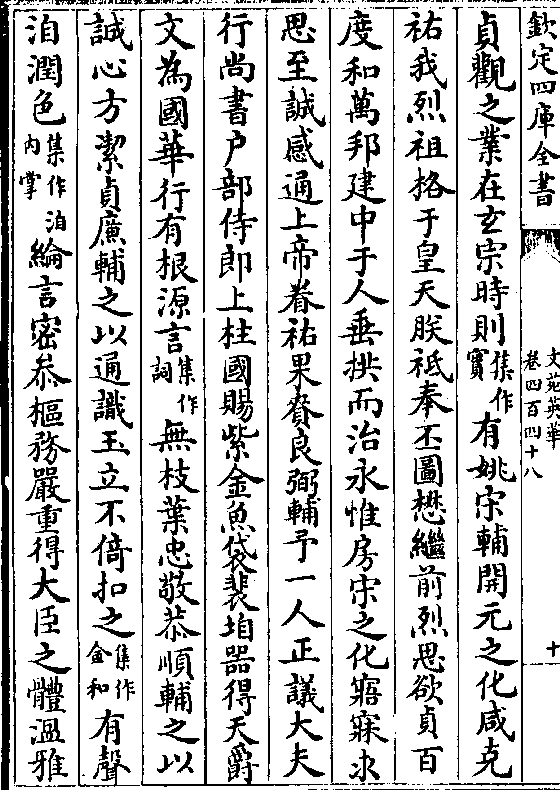 欽定四庫全書
文苑英華
卷四百四十八
十
貞觀之業在玄宗時則集作實有姚宋輔開元之化咸克
祐我烈祖格于皇天朕祗奉丕圖懋繼前烈思欲貞百
度和萬邦建中于人垂拱而治永惟房宋之化寤寐求
思至誠感通上帝眷祐果賚良弼輔予一人正議大夫
行尚書户部侍郎上柱國賜紫金魚袋裴垍器得天爵
文為國華行有根源言集作詞無枝葉忠敬恭順輔之以
誠心方潔貞廉輔之以通識玉立不倚扣之集作金和有聲
洎潤色集作洎内掌綸言密叅樞務嚴重得大臣之體溫雅